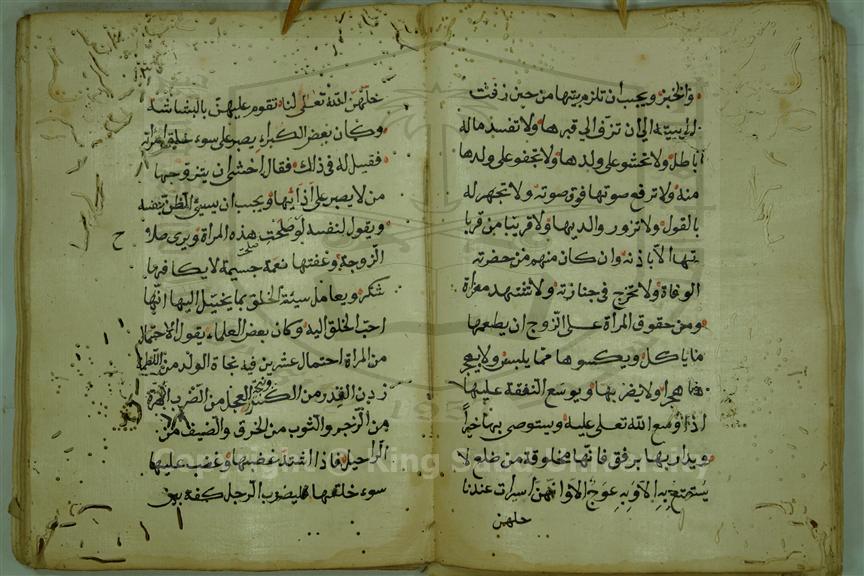 والخبز ويجب أن تلزم بيتها من حين زفت
الى بيته الى ان تزف الى قبرها ولا تفسد ماله
باطلا ولا تحنثو على ولدها ولا تجفو على ولدها
منه ولا ترفع صوتها فوق صوته ولا تجهر له
بالقول ولا تزور والديها ولا قريبا من قربا
ئها الا باذنه وان كان منهم من حضرته
الوفاة ولا تخرج في جنازته ولا تشهد معزاة
ومن حقوق المرأة على الزوج ان يطعمها
مما ياكل ويكسوها مما يلبس ولا يهجر
ها هجرا ولا يضربها ويوسع النفقة عليها
اذا وسع الله تعالى عليه ويستوصى بها خيرا
ويداريها برفق فانها مخلوقة من ضلع لا
يستمتع به الا وبه عوج الا وانهن اسرات عندنا
حلهن
حلهن الله تعالى لنا تقوم عليهن بالبشاشة
وكان بعض الكبراء يصبر على سوء خلق امراته
فقيل له في ذلك فقال اخشى ان يتزوجها
من لا يصبر على أذائها ويجب ان يسيئ الظن بنفسه
ويقول لنفسه لو صلحت صلحت هذه المرأة ويرى صلاح
الزوجة وعفتها نعمة جسيمة لا يكافيها
شكر ويعامل سيئة الخلق بما يخيل اليها انها
احب الخلق اليه وكان بعض العلماء يقول الاحتمال
من المرأة احتمال عشرين فيه نجاة الولد من اللطمة
القدر من الكسر ونجوة العجل من الضرب الهرة
من الزجر والثوب من الخرق والضيف من
الرحيل فاذا اشتد غضبها وغضب عليها
سوء خلقها فليضرب الرجل كفه بين